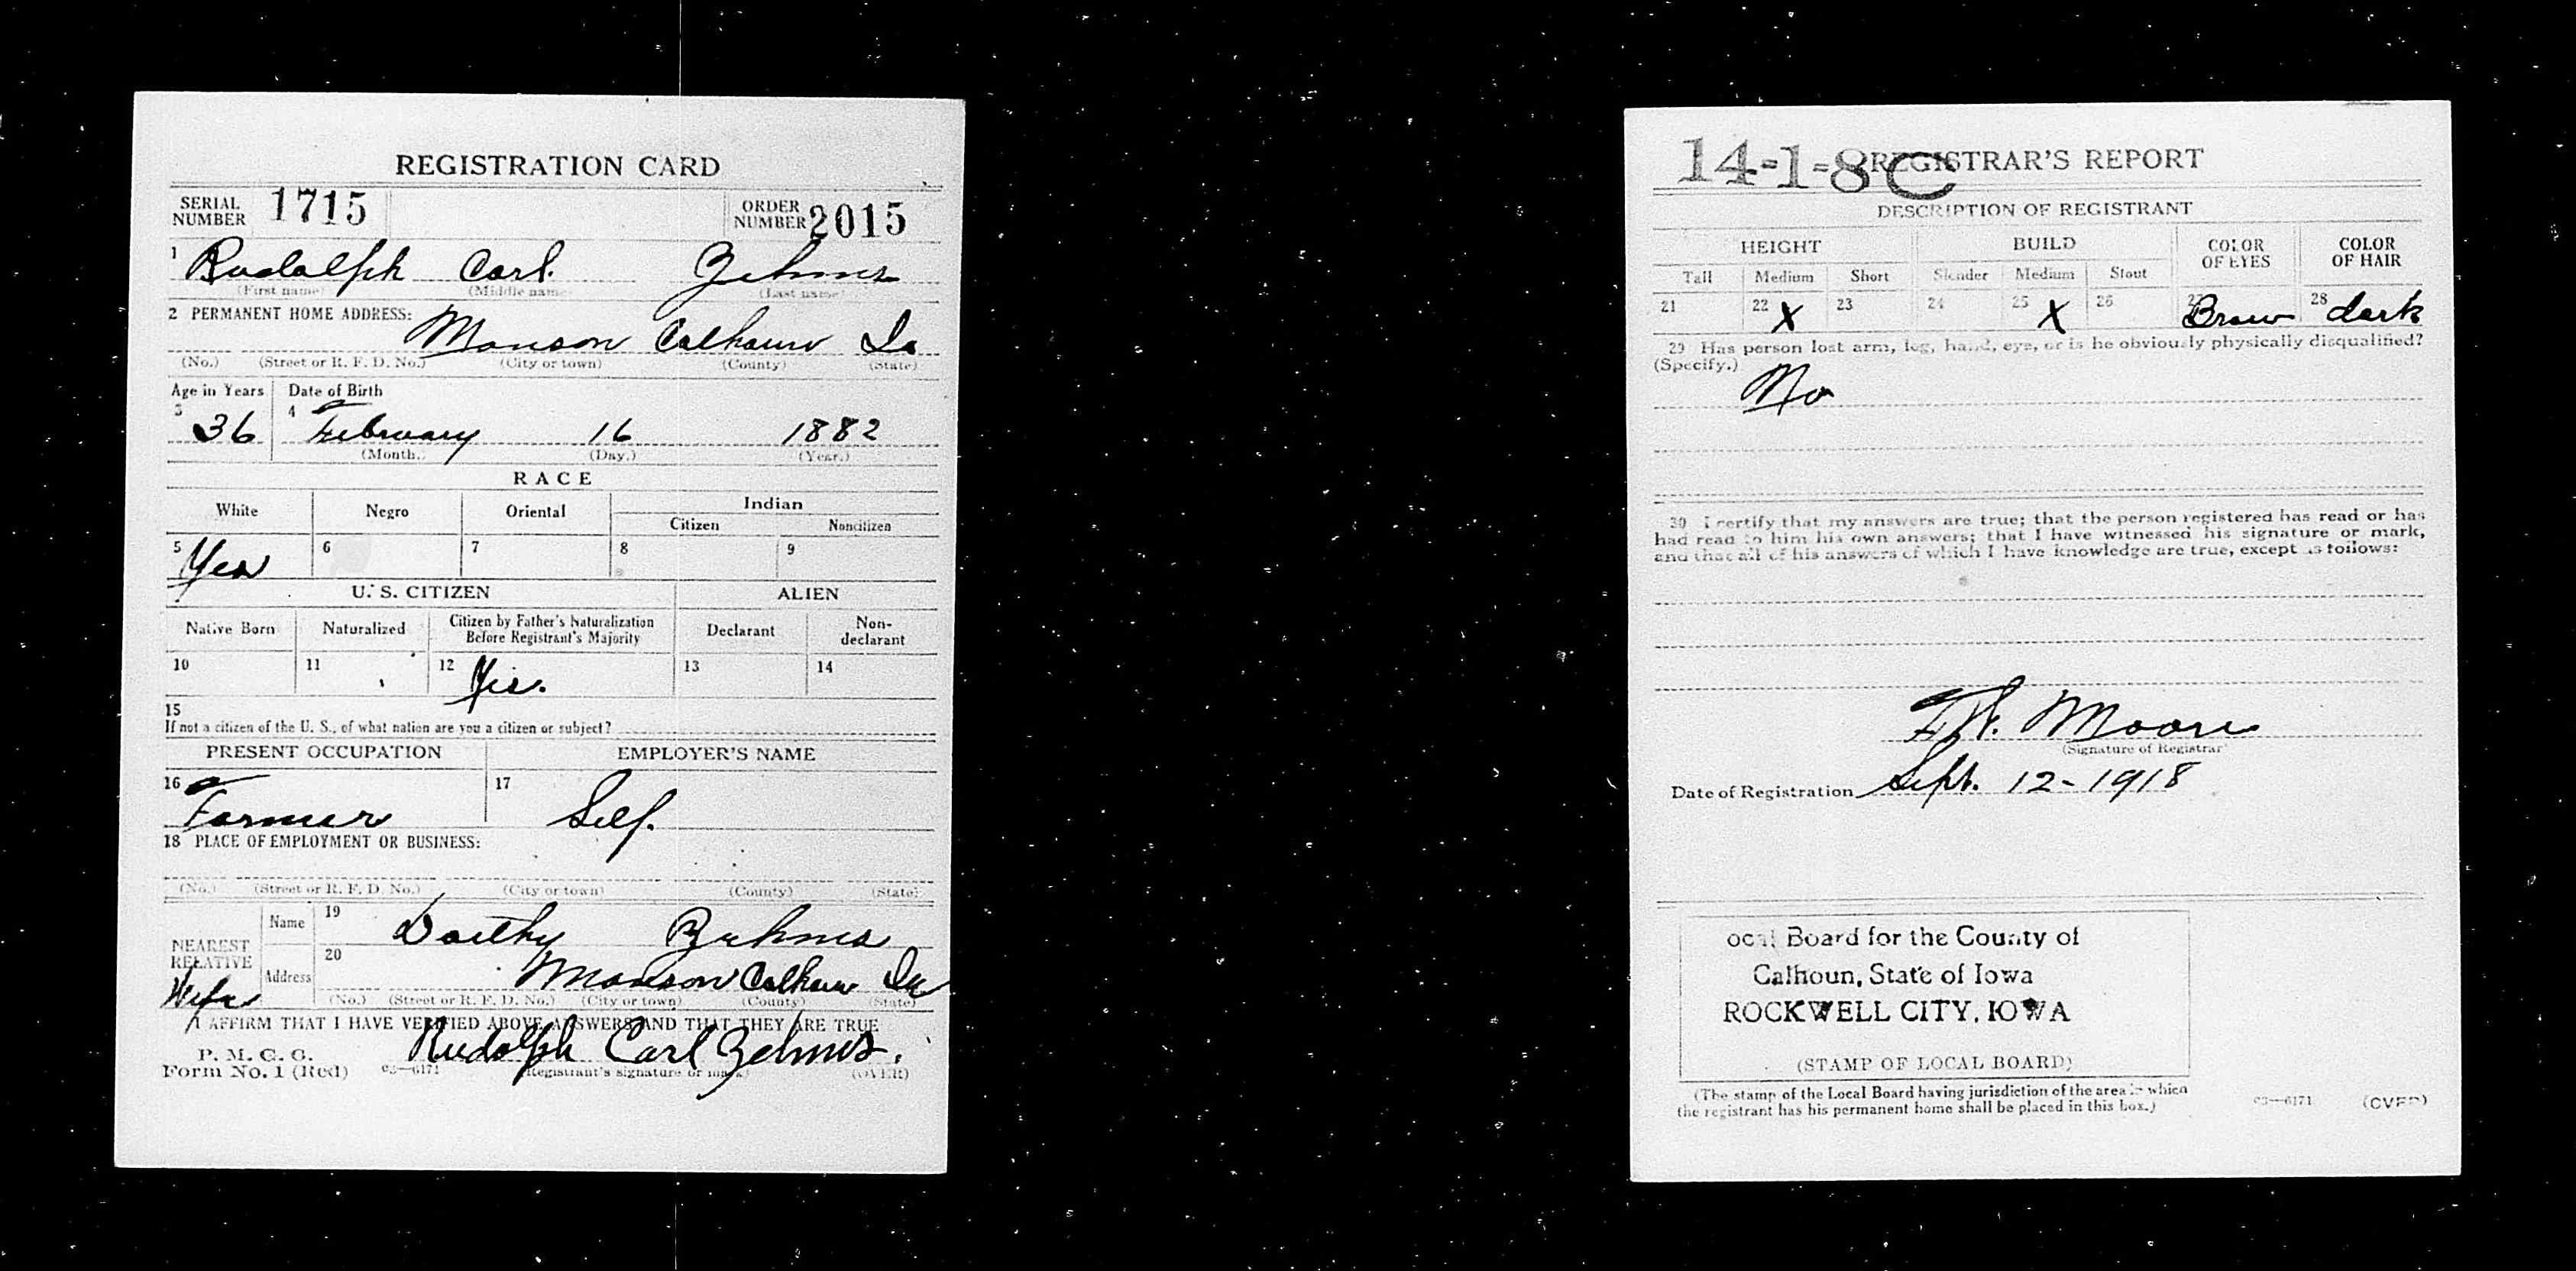 REGISTRATION CARD
SERIAL NUMBER 1715
ORDER NUMBER 2015
1 Rudolph Carl Zehms
(First name) (Middle name) (Last name)
2 PERMANENT HOME ADDRESS:
Manson Calhoun Ia
(No.) (Street or R. F. D. No.) (City or town) (County) (State)
Age in Years Date of Birth
3 36 4 February 16 1882
(Month.) (Day.) (Year.)
RACE
White Negro Oriental Indian
Citizen Noncitizen
5 Yes 6 7 8 9
U. S. CITIZEN ALIEN
Native Born Naturalized Citizen by Father's Naturalization Before Registrant's Majority Declarant Non-declarant
10 11 12 Yes. 13 14
15
If not a citizen of the U. S., of what nation are you a citizen or subject?
PRESENT OCCUPATION EMPLOYER'S NAME
16 Farmer 17 Self.
18 PLACE OF EMPLOYMENT OR BUSINESS:
(No.) (Street or R. F. D. No.) (City or town) (County) (State)
NEAREST RELATIVE Wife
Name 19 Zehms
Address 20 Manson Calhoun Ia
(No.) (Street or R. F. D. No.) (City or town) (County) (State)
I AFFIRM THAT I HAVE VERIFIED ABOVE ANSWERS AND THAT THEY ARE TRUE
P. M. G. O.
Form No. 1 (Red) 03—6171
Rudolph Carl Zehms.
(Registrant's signature or mark) (OVER)
14-1-8 C
REGISTRAR'S REPORT
DESCRIPTION OF REGISTRANT
HEIGHT BUILD COLOR OF EYES COLOR OF HAIR
Tall Medium Short Slender Medium Stout
21 22 X 23 24 25 X 26 27 Brow 28 dark
29 Has person lost arm, leg, hand, eye, or is he obviously physically disqualified?
(Specify.)
No
30 I certify that my answers are true; that the person registered has read or has
had read to him his own answers; that I have witnessed his signature or mark,
and that all of his answers of which I have knowledge are true, except as follows:
Moore
(Signature of Registrar)
Date of Registration Sept. 12-1918
ocal Board for the County of
Calhoun, State of Iowa
ROCKWELL CITY, IOWA
(STAMP OF LOCAL BOARD)
(The stamp of the Local Board having jurisdiction of the area in which
the registrant has his permanent home shall be placed in this box.)
03—6171 (OVER)